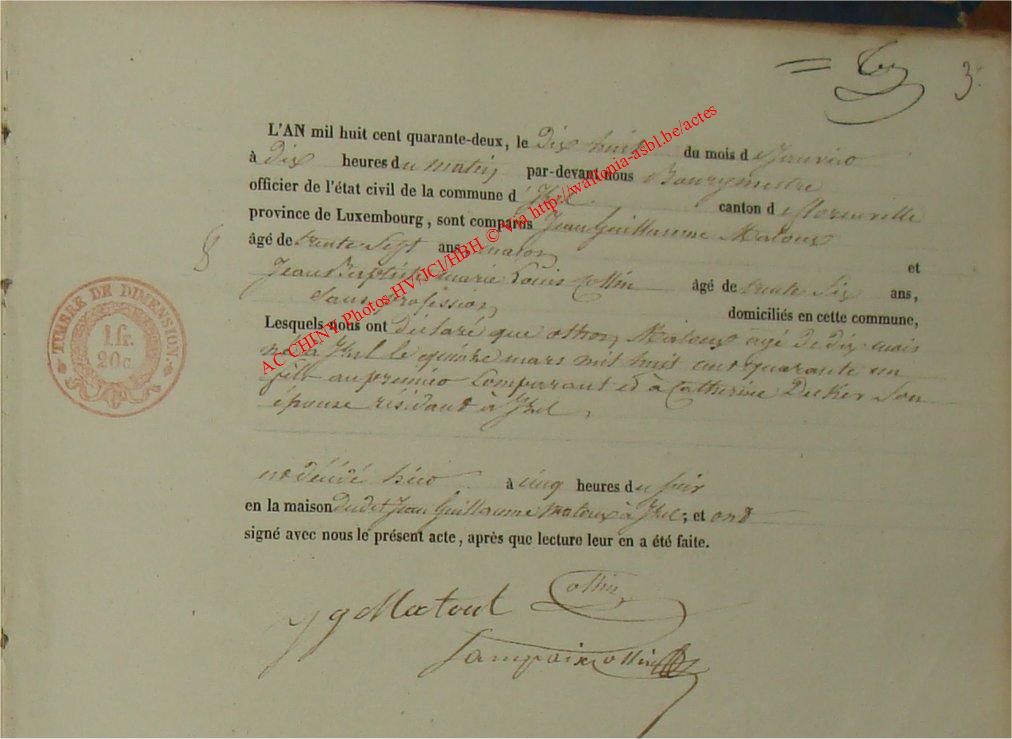 3.
L'AN mil huit cent quarante-deux, le dix huit du mois d e Janvier
à Dix heures du matin par-devant nous Bourgmestre
officier de l'état civil de la commune d'Izel canton d e florenville
province de Luxembourg, sont comparus Jean Guillaume Matoux
âgé de trente Sept ans et
Jean Baptiste marie Louis Collin âgé de trente Six ans,
Sans profession domiciliés en cette commune,
Lesquels nous ont déclaré que othon Matoux agé de dix mois
né à Izel le quinze mars mil huit cent quarante un
fils au premier Comparant et à Catherine Decker Son
epouse résidant à Izel,
est décédé hier à cinq heures du soir
en la maison dudit Jean Guillaume Matoux à Izel; et ont
signé avec nous le présent acte, après que lecture leur en a été faite.
JgMatoul
Collin
Lampaix Collin
TIMBRE DE DIMENSION
1 fr.
20 c.
AC CHINY Photos HV/JCl/HBH © Via http://wallonia-asbl.be/actes